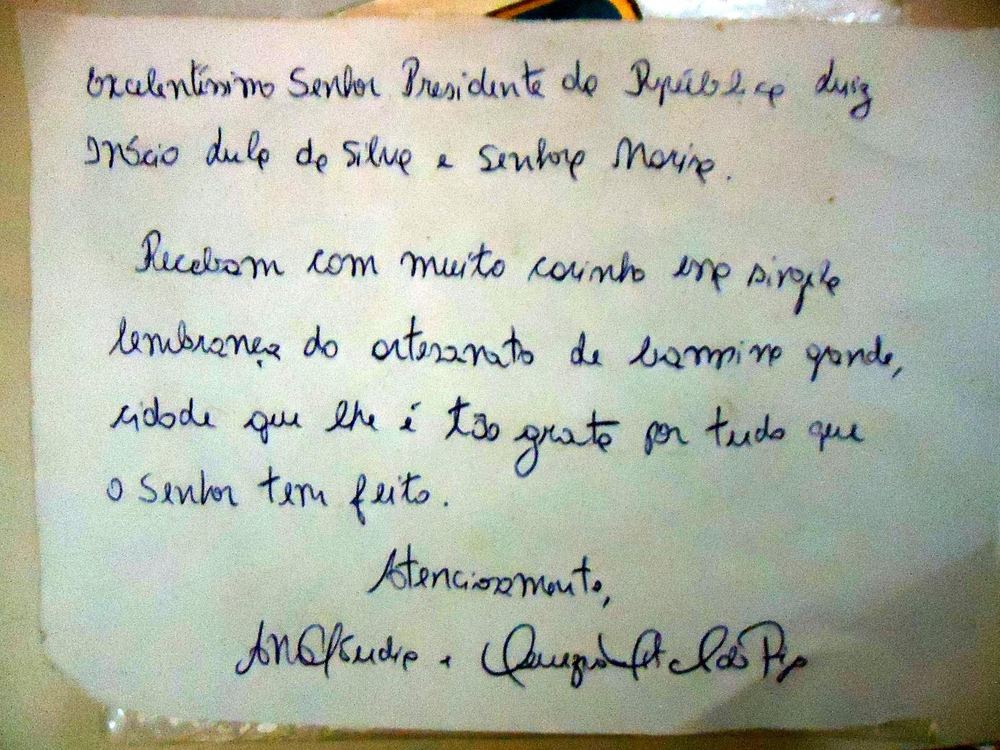 Excelentíssimo Senhor Presidente da República Luiz
Inácio Lula da Silva e Senhora Marisa.
Recebam com muito carinho essa simples
lembrança do artesanato de Campina Grande,
cidade que lhe é tão grata por tudo que
o Senhor tem feito.
Atenciosamente,
Ana Cláudia e